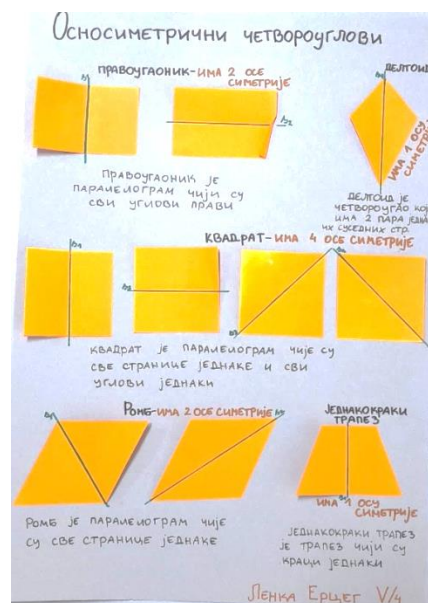 Основиметрични четвороуглови
ПРАВОУГАОНИК-ИМА 2 ОСЕ
СИМЕТРИЈЕ
ДЕЛТОИД
ИМА 1 ОСУ
СИМЕТРИЈЕ
ПРАВОУГАОНИК ЈЕ
ПАРАЛЕЛОГРАМ ЧИЈИ СУ
СВИ УГЛОВИ ПРАВИ
ДЕЛТОИД ЈЕ
ЧЕТВОРОУГАО КОЈ
ИМА 2 ПАРА
ИХ СУСЕДНИХ СТР.
КВАДРАТ-ИМА 4 ОСЕ СИМЕТРИЈЕ
КВАДРАТ ЈЕ ПАРАЛЕЛОГРАМ ЧИЈЕ СУ
СВЕ СТРАНИЦЕ ЈЕДНАКЕ И СВИ
УГЛОВИ ЈЕДНАКИ
РОМБ-ИМА 2 ОСЕ СИМЕТРИЈЕ
ЈЕДНАКОКРАКИ
ТРАПЕЗ
ИМА 1 ОСУ
СИМЕТРИЈЕ
РОМБ ЈЕ ПАРАЛЕЛОГРАМ ЧИЈЕ
СУ СВЕ СТРАНИЦЕ ЈЕДНАКЕ
ЈЕДНАКОКРАКИ ТРАПЕЗ
ЈЕ ТРАПЕЗ ЧИЈИ СУ
КРАЦИ ЈЕДНАКИ
ЛЕНКА ЕРЦЕГ V/4